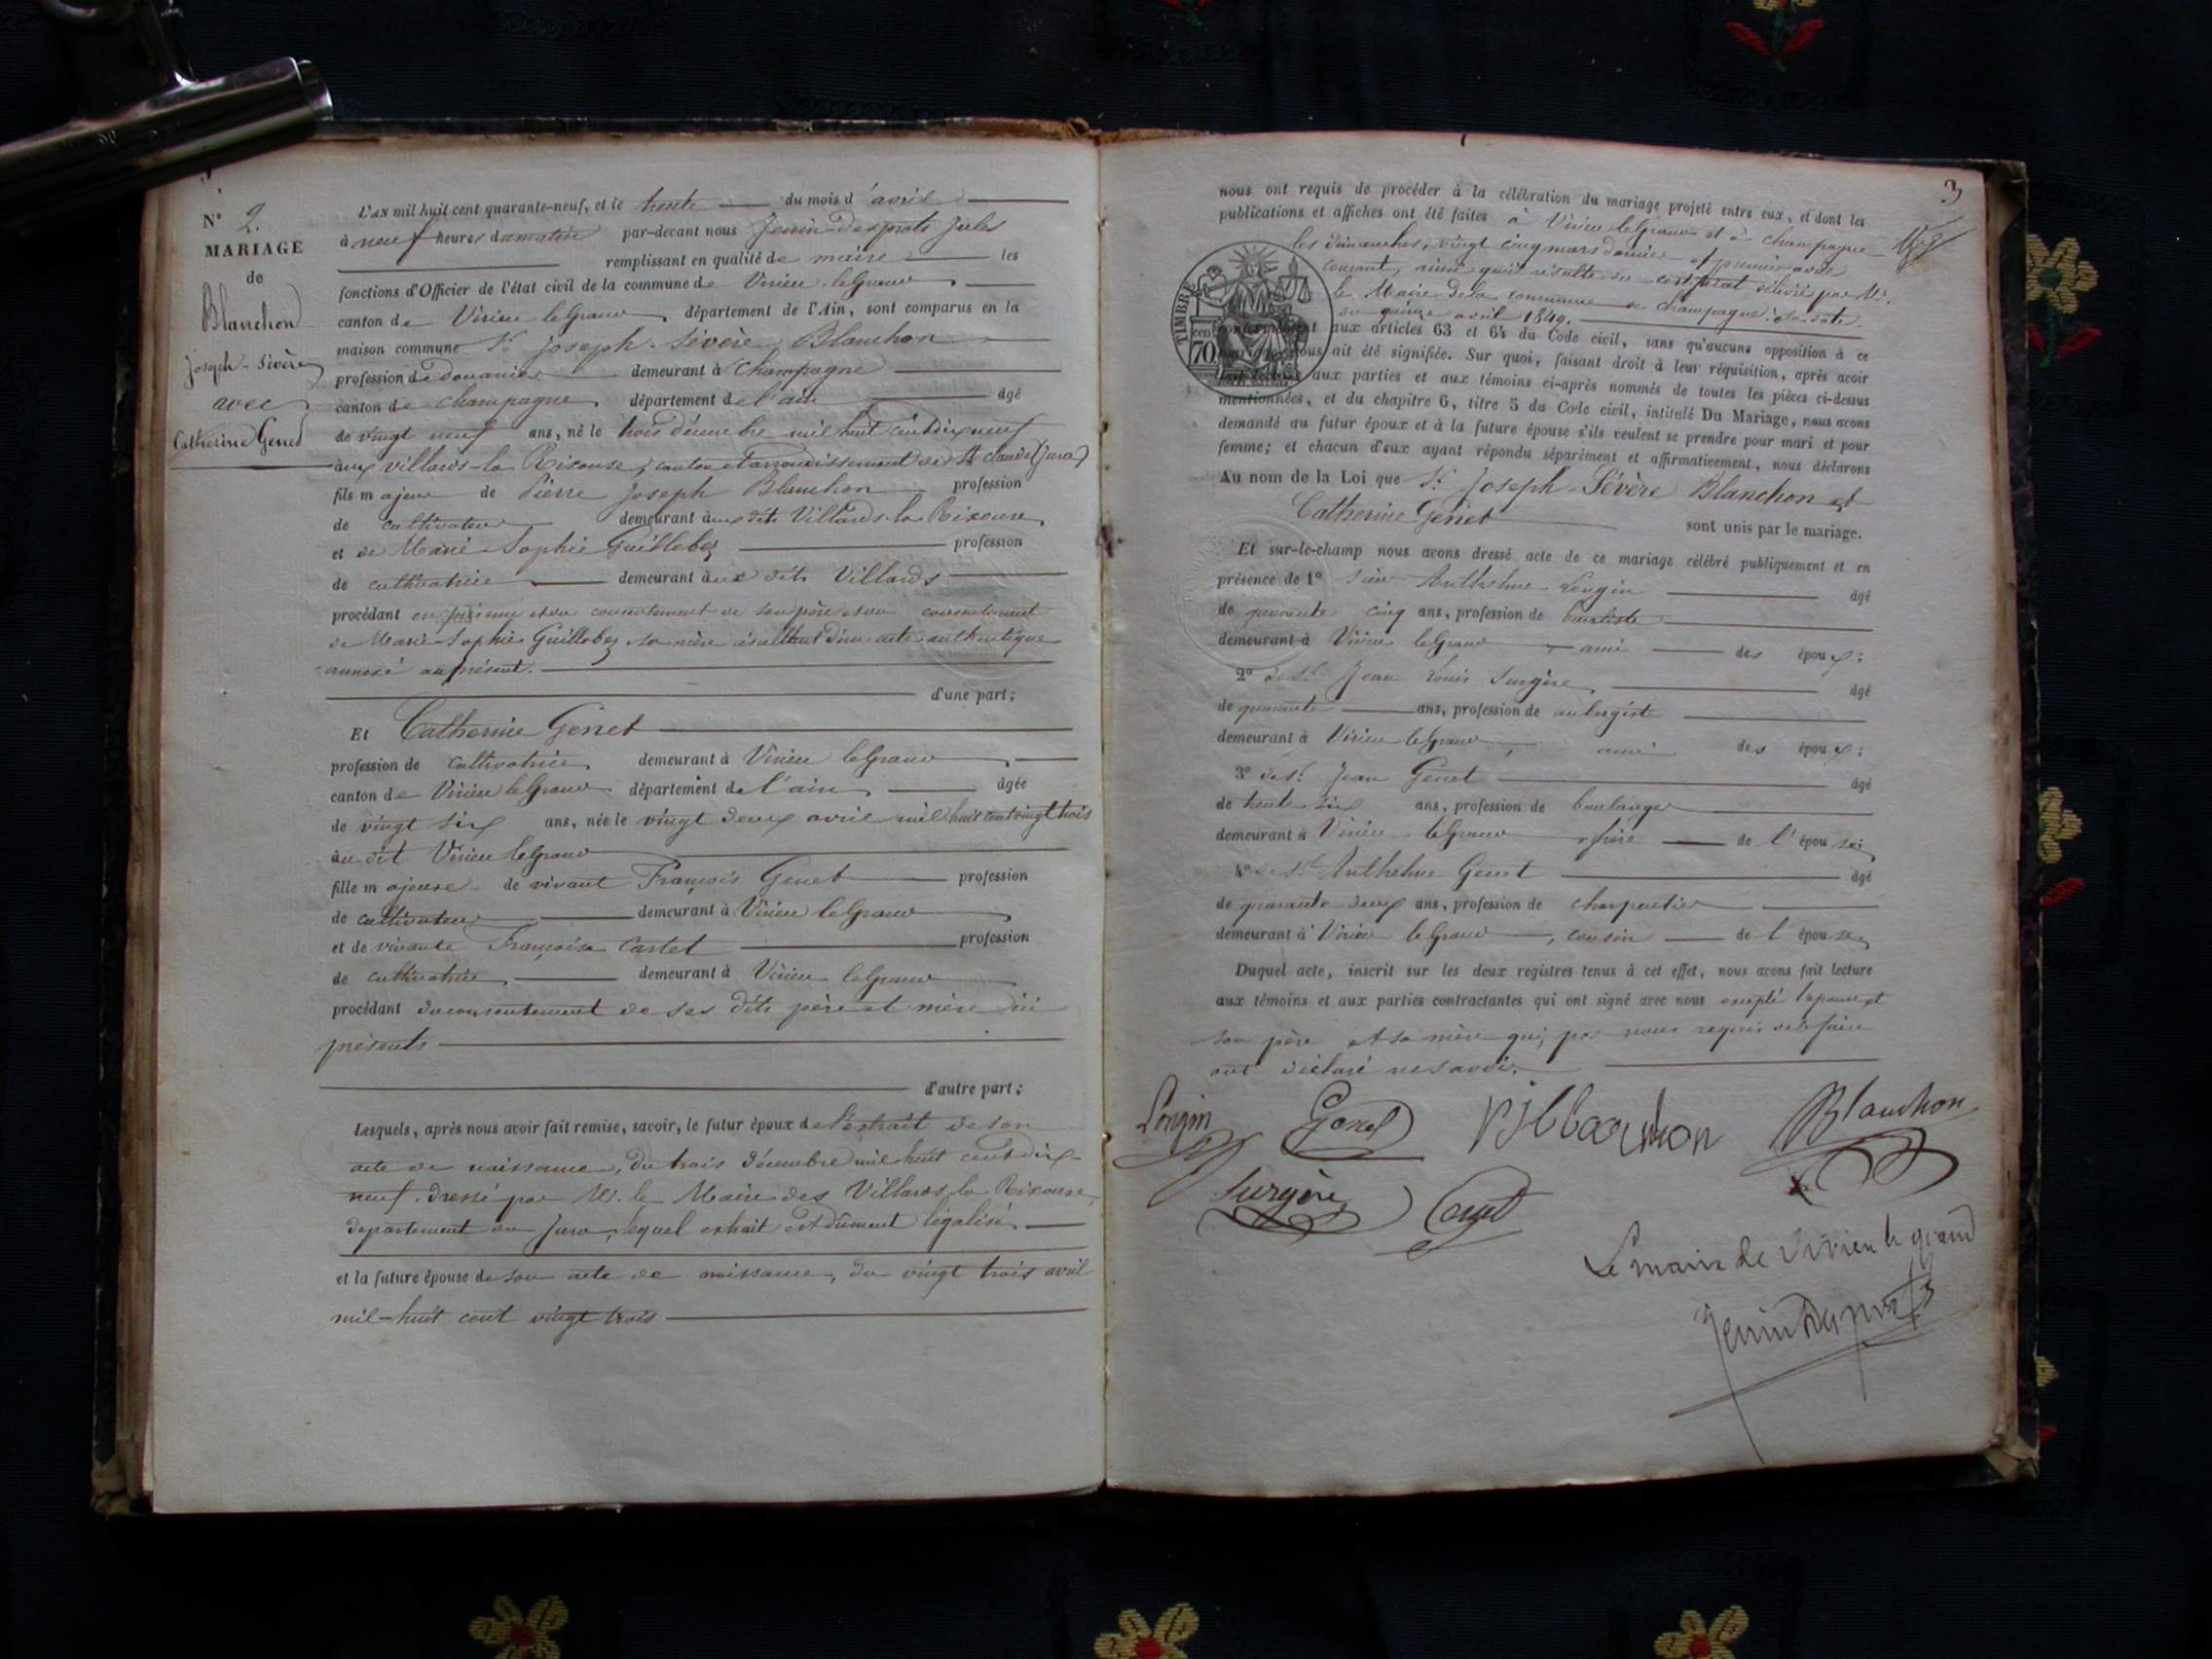 N° 2.
MARIAGE
de
Blanchon
joseph-Sévère
avec
Catherine Genet
L'AN mil huit cent quarante-neuf, et le trente du mois d'avril
à neuf heures du matin par-devant nous Jenin Desprots Jules
remplissant en qualité de maire les
fonctions d'Officier de l'état civil de la commune de Virieu le Grand
canton de Virieu le Grand, département de l'Ain, sont comparus en la
maison commune Sr. joseph-Sévère Blanchon
profession de douanier demeurant à Champagne
canton de champagne, département de l'ain âgé
de vingt neuf ans, né le trois décembre mil huit cent dix neuf
aux villards-la Rixouse, canton et arrondissement de St. claude (jura)
fils majeur de Pierre Joseph Blanchon profession
de cultivateur demeurant aux dits Villards-la Rixouse,
et de Marie Sophie Guillobez profession
de cultivatrice demeurant aux dits Villards
procédant en personne et du consentement de son père et du consentement
de Marie-Sophie Guillobez sa mère résultant d'un acte authentique
annexé au présent.
d'une part;
Et Catherine Genet
profession de cultivatrice, demeurant à Virieu le Grand
canton de Virieu le Grand département de l'ain, âgée
de vingt six ans, née le vingt deux avril mil huit cent vingt trois
au dit Virieu le Grand
fille majeure de vivant François Genet profession
de cultivateur demeurant à Virieu le Grand
et de vivante Françoise Cartet profession
de cultivatrice, demeurant à Virieu le Grand
procédant du consentement de ses dits père et mère ici
présents
d'autre part;
Lesquels, après nous avoir fait remise, savoir, le futur époux de l'extrait de son
acte de naissance, du trois décembre mil huit cent dix
neuf. dressé par M. le Maire des Villards la Rixouse,
département du Jura, lequel extrait est dûment légalisé.
et la future épouse de son acte de naissance, du vingt trois avril
mil-huit cent vingt trois
3
nous ont requis de procéder à la célébration du mariage projeté entre eux, et dont les
publications et affiches ont été faites à Virieu le Grand et à champagne
les dimanches, vingt cinq mars dernier et premier avril
courant, ainsi qu'il résulte du certificat délivré par M.
le Maire de la commune de champagne à la date
du quinze avril 1849.
TIMBRE
70
conformément aux articles 63 et 64 du Code civil, sans qu'aucune opposition à ce
nous ait été signifiée. Sur quoi, faisant droit à leur réquisition, après avoir
aux parties et aux témoins ci-après nommés de toutes les pièces ci-dessus
mentionnées, et du chapitre 6, titre 5 du Code civil, intitulé Du Mariage, nous avons
demandé au futur époux et à la future épouse s'ils veulent se prendre pour mari et pour
femme; et chacun d'eux ayant répondu séparément et affirmativement, nous déclarons
Au nom de la Loi que Sr. Joseph-Sévère Blanchon et
Catherine Genet sont unis par le mariage.
Et sur-le-champ nous avons dressé acte de ce mariage célébré publiquement et en
présence de 1° Sieur Anthelme Longin âgé
de quarante cinq ans, profession de buraliste
demeurant à Virieu le Grand ami des époux;
2° de Sr. Jean Louis Surgère, âgé
de quarante ans, profession de aubergiste
demeurant à Virieu le Grand, ami des époux;
3° de Sr. Jean Genet âgé
de trente six ans, profession de boulanger
demeurant à Virieu le Grand frère de l'épouse;
4° de Sr. Anthelme Genet âgé
de quarante deux ans, profession de charpentier
demeurant à Virieu le Grand, cousin de l'épouse,
Duquel acte, inscrit sur les deux registres tenus à cet effet, nous avons fait lecture
aux témoins et aux parties contractantes qui ont signé avec nous excepté l'épouse et
son père et sa mère qui, par nous requis de le faire
ont déclaré ne savoir.
Longin Genet Blanchon
Surgère Genet
Le maire de Virieu le grand
Jenin Desprots